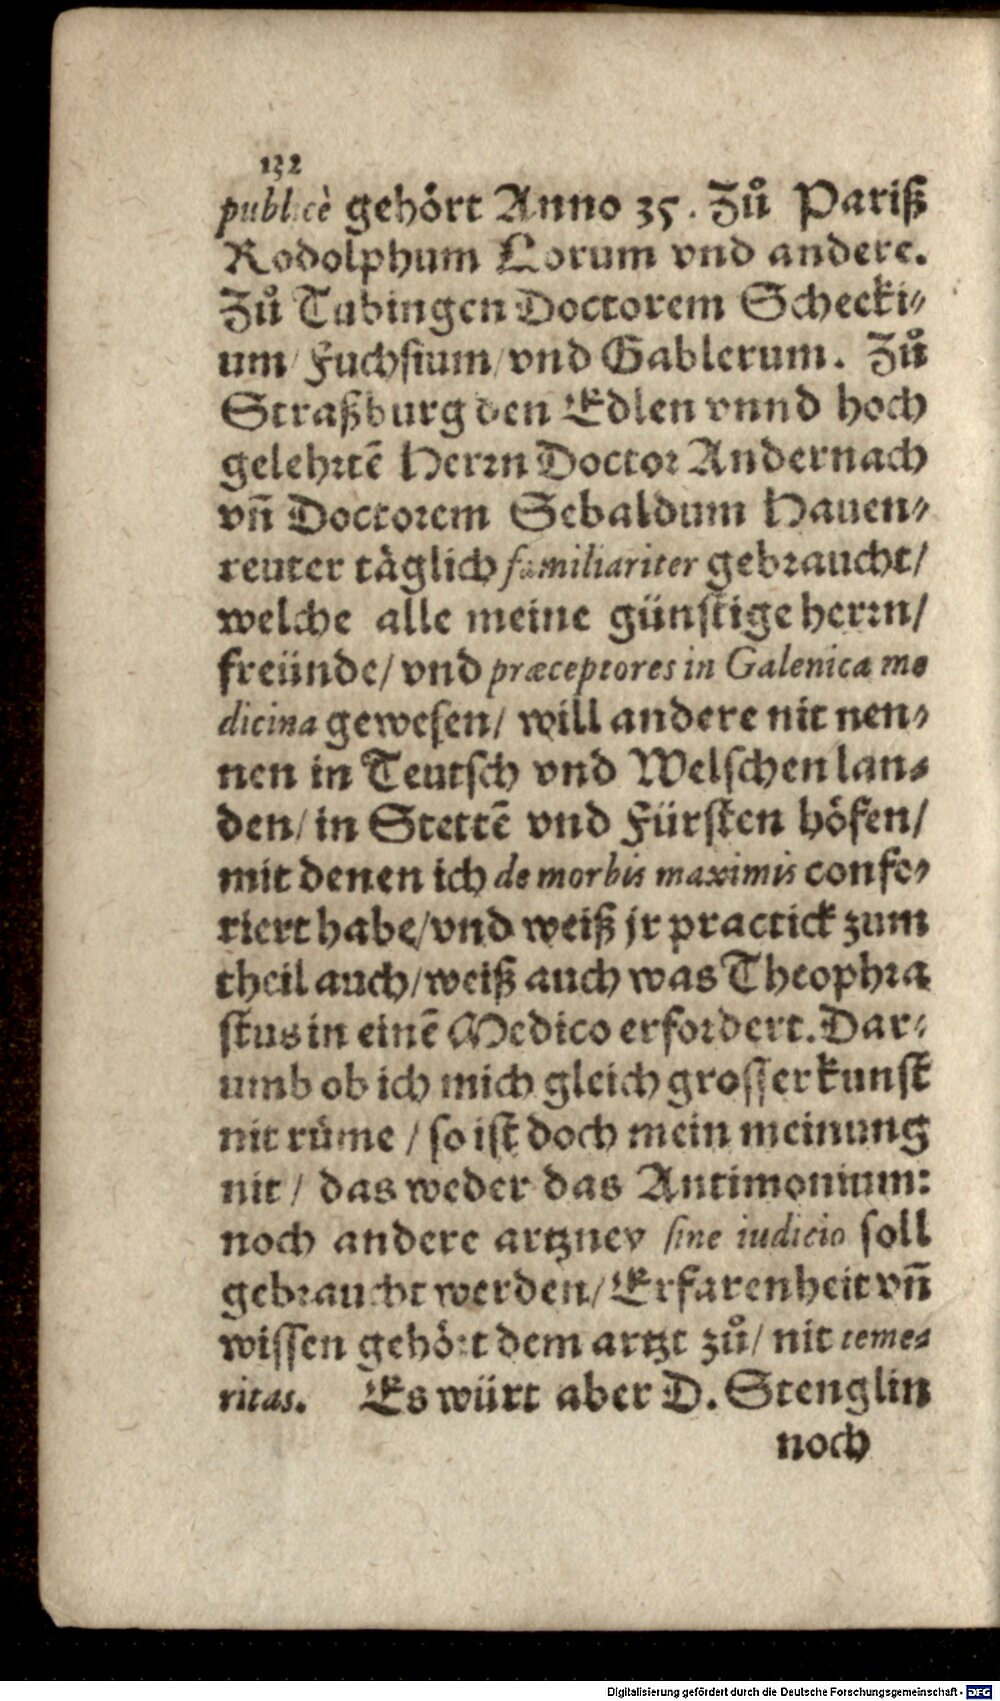 132
publicè gehört Anno 35. Zů Pariß
Rodolphum Lorum vnd andere.
Zů Tubingen Doctorem Schecki⸗
um/ Fuchsium/ vnd Gablerum. Zů
Straßburg den Edlen vnnd hoch
gelehrtē Herrn Doctor Andernach
vñ Doctorem Sebaldum Hauen⸗
reuter täglich familiariter gebraucht/
welche alle meine günstige herrn/
freünde/ vnd præceptores in Galenica me
dicina gewesen/ will andere nit nen⸗
nen in Teutsch vnd Welschen lan⸗
den/ in Stettē vnd Fürsten höfen/
mit denen ich de morbis maximis confe⸗
riert habe/ vnd weiß jr practick zum
theil auch/ weiß auch was Theophra
stus in einē Medico erfordert. Dar⸗
umb ob ich mich gleich grosser kunst
nit rüme / so ist doch mein meinung
nit / das weder das Antimonium:
noch andere artzney sine iudicio soll
gebraucht werden/ Erfarenheit vñ
wissen gehört dem artzt zů/ nit teme⸗
ritas. Es würt aber D. Stenglin
noch
Digitalisierung gefördert durch die Deutsche Forschungsgemeinschaft - DFG